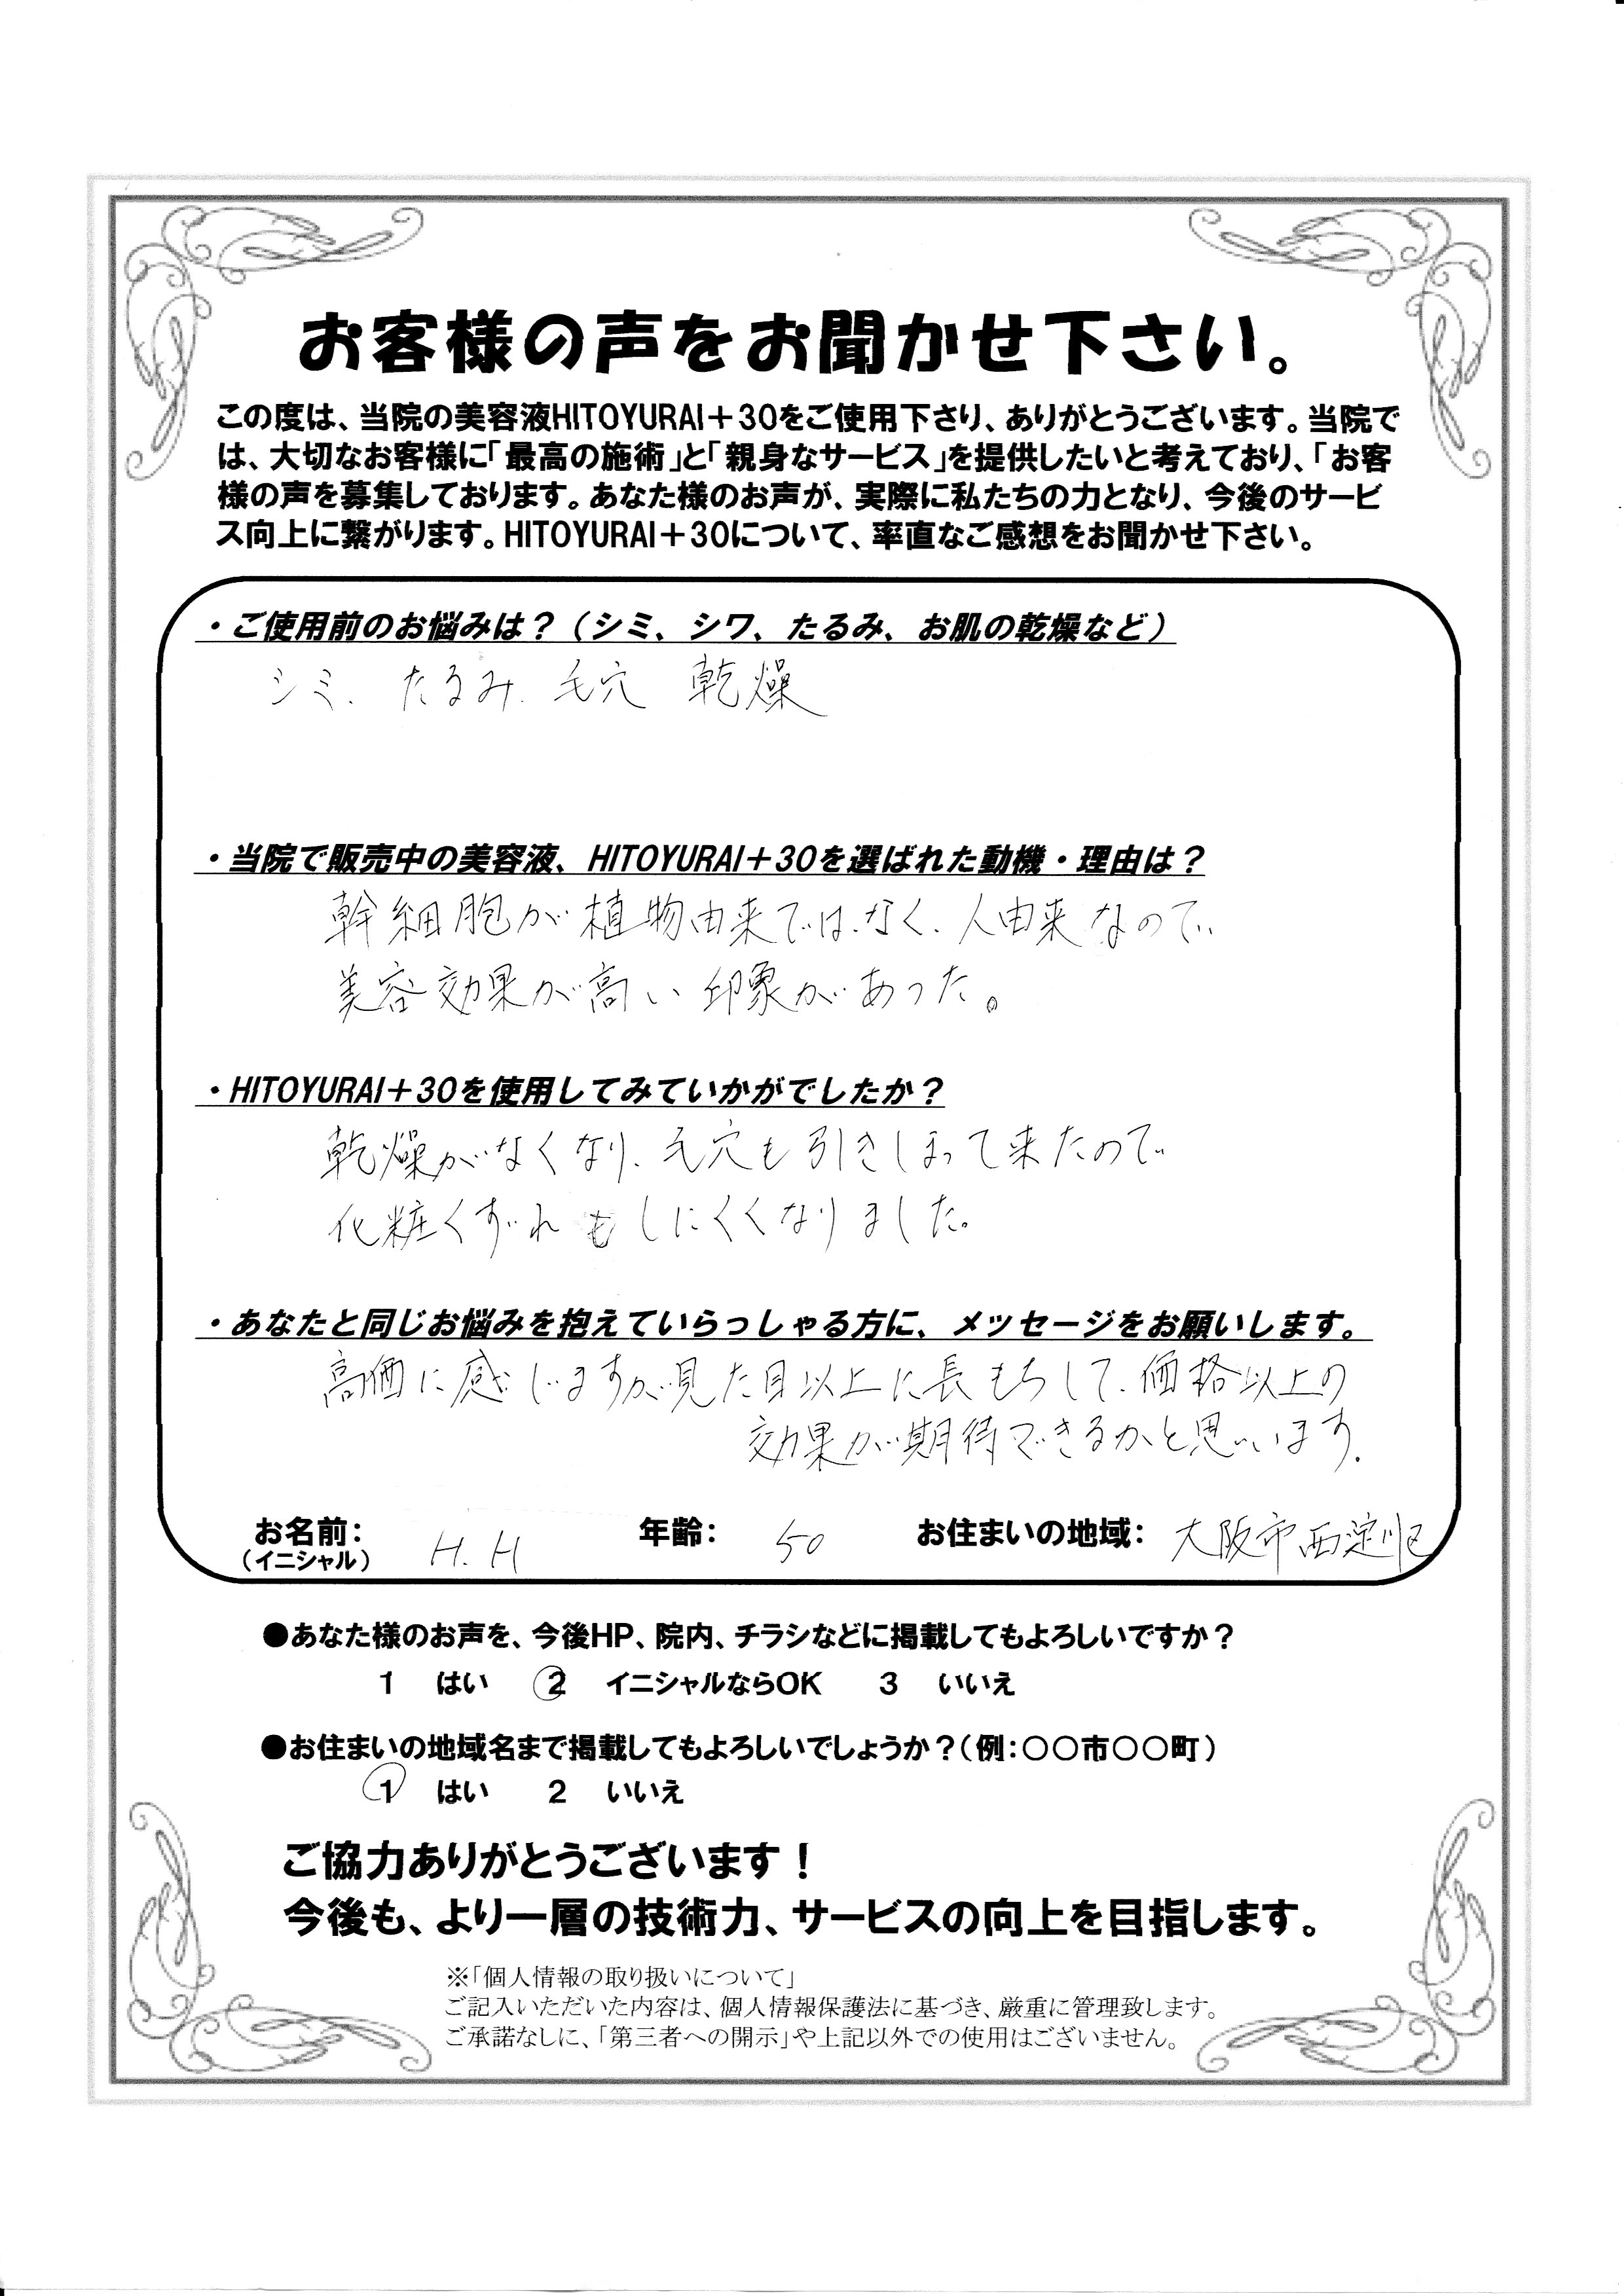 お客様の声をお聞かせ下さい。
この度は、当院の美容液HITOYURAI＋30をご使用下さり、ありがとうございます。当院で
は、大切なお客様に「最高の施術」と「親身なサービス」を提供したいと考えており、「お客
様の声を募集しております。あなた様のお声が、実際に私たちの力となり、今後のサービ
ス向上に繋がります。HITOYURAI＋30について、率直なご感想をお聞かせ下さい。
・ご使用前のお悩みは？（シミ、シワ、たるみ、お肌の乾燥など）
シミ、たるみ、毛穴 乾燥
・当院で販売中の美容液、HITOYURAI＋30を選ばれた動機・理由は？
幹細胞が植物由来ではなく、人由来なので
美容効果が高い印象があった。
・HITOYURAI＋30を使用してみていかがでしたか？
乾燥がなくなり、毛穴も引きしまって来たので
化粧くずれもしにくくなりました。
・あなたと同じお悩みを抱えていらっしゃる方に、メッセージをお願いします。
高価に感じますが見た目以上に長もちして、価格以上の
効果が期待できるかと思います。
お名前： H.H 年齢： 50 お住まいの地域： 大阪市西淀川区
（イニシャル）
●あなた様のお声を、今後HP、院内、チラシなどに掲載してもよろしいですか？
1 はい 2 イニシャルならOK 3 いいえ
●お住まいの地域名まで掲載してもよろしいでしょうか？（例：〇〇市〇〇町）
1 はい 2 いいえ
ご協力ありがとうございます！
今後も、より一層の技術力、サービスの向上を目指します。
※「個人情報の取り扱いについて」
ご記入いただいた内容は、個人情報保護法に基づき、厳重に管理致します。
ご承諾なしに、「第三者への開示」や上記以外での使用はございません。